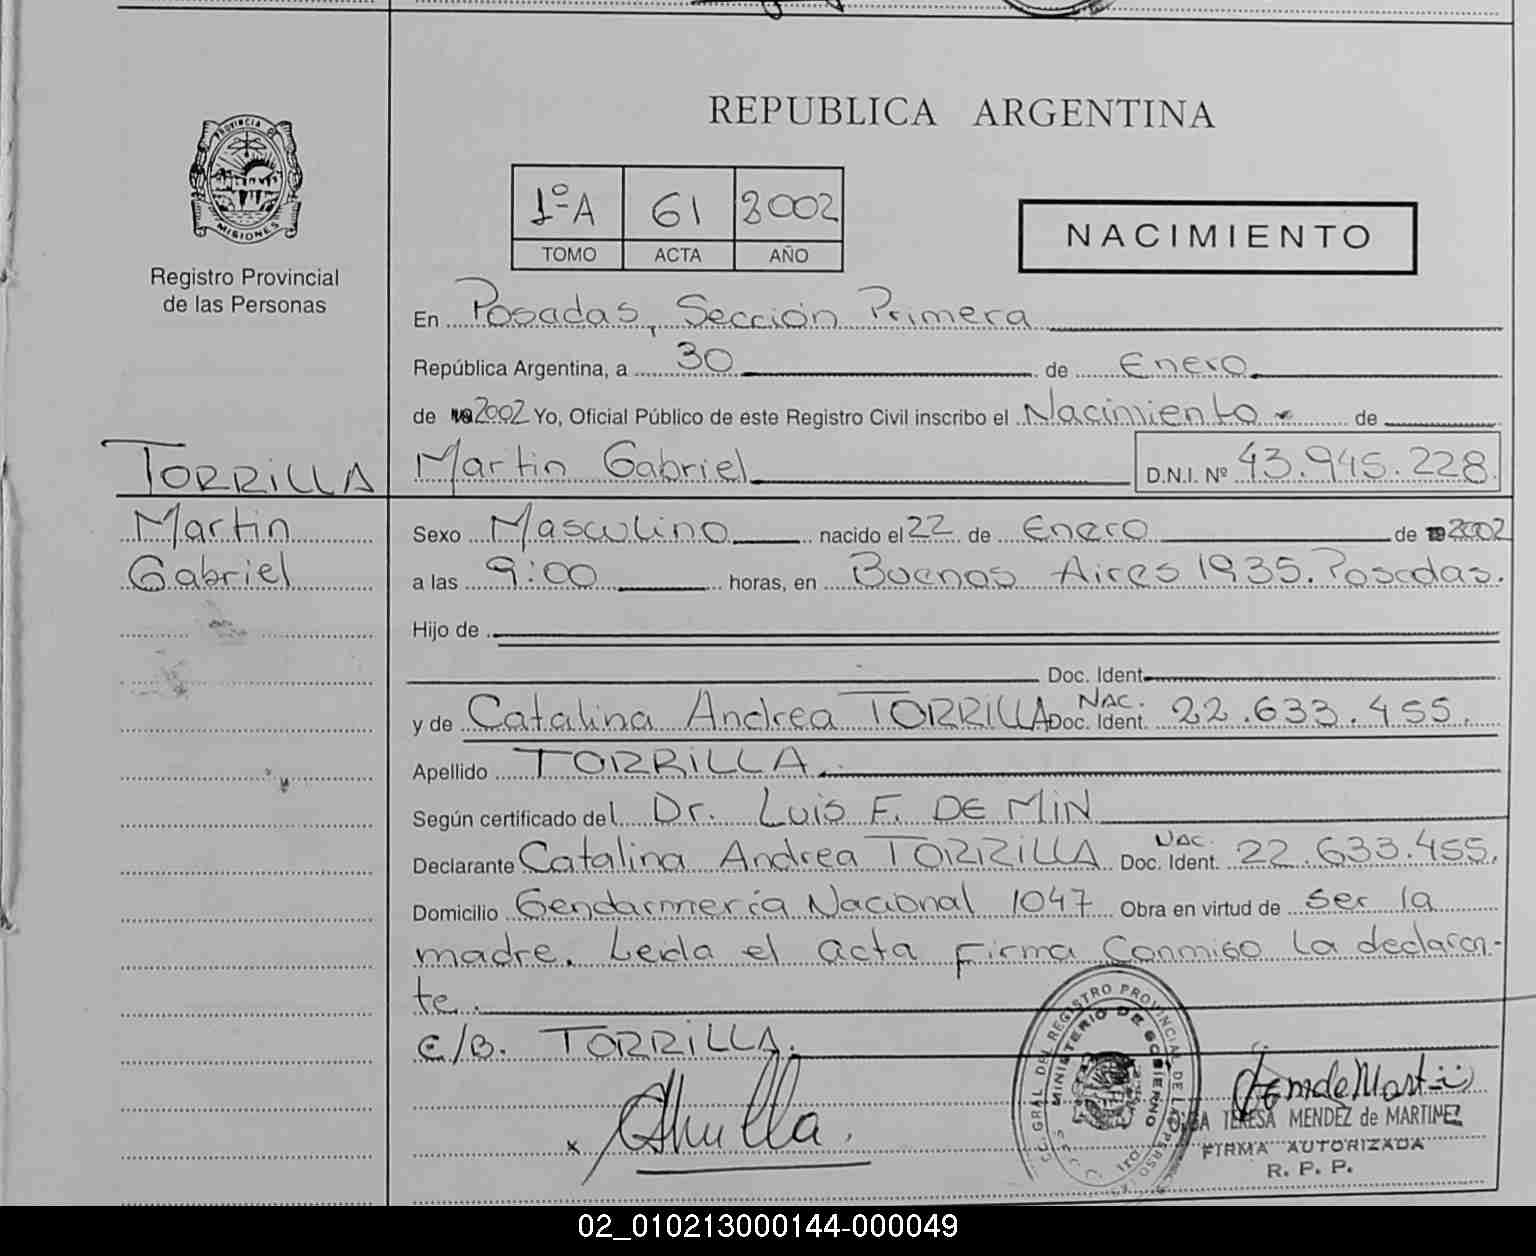 PROVINCIA DE
MISIONES
Registro Provincial
de las Personas
REPUBLICA ARGENTINA
1º A 61 2002
TOMO ACTA AÑO
NACIMIENTO
En Posadas, Sección Primera
República Argentina, a 30 de Enero
de 2002 Yo, Oficial Público de este Registro Civil inscribo el Nacimiento de
TORRILLA Martin Gabriel D.N.I. Nº 43.945.228
Martin
Gabriel
Sexo Masculino nacido el 22 de Enero de 2002
a las 9:00 horas, en Buenos Aires 1935. Posadas.
Hijo de
Doc. Ident.
y de Catalina Andrea TORRILLA Nac. Doc. Ident. 22.633.455.
Apellido TORRILLA.
Según certificado del Dr. Luis F. DE MIN
Declarante Catalina Andrea TORRILLA Nac. Doc. Ident. 22.633.455.
Domicilio Gendarmería Nacional 1047 Obra en virtud de ser la
madre. Leida el acta firma conmigo la declaran-
te.
E/B. TORRILLA.
REGISTRO PROVINCIAL DE LAS PERSO
MINISTERIO DE GOBIERNO
TERESA MENDEZ de MARTINEZ
FIRMA AUTORIZADA
R. P. P.
02_010213000144-000049